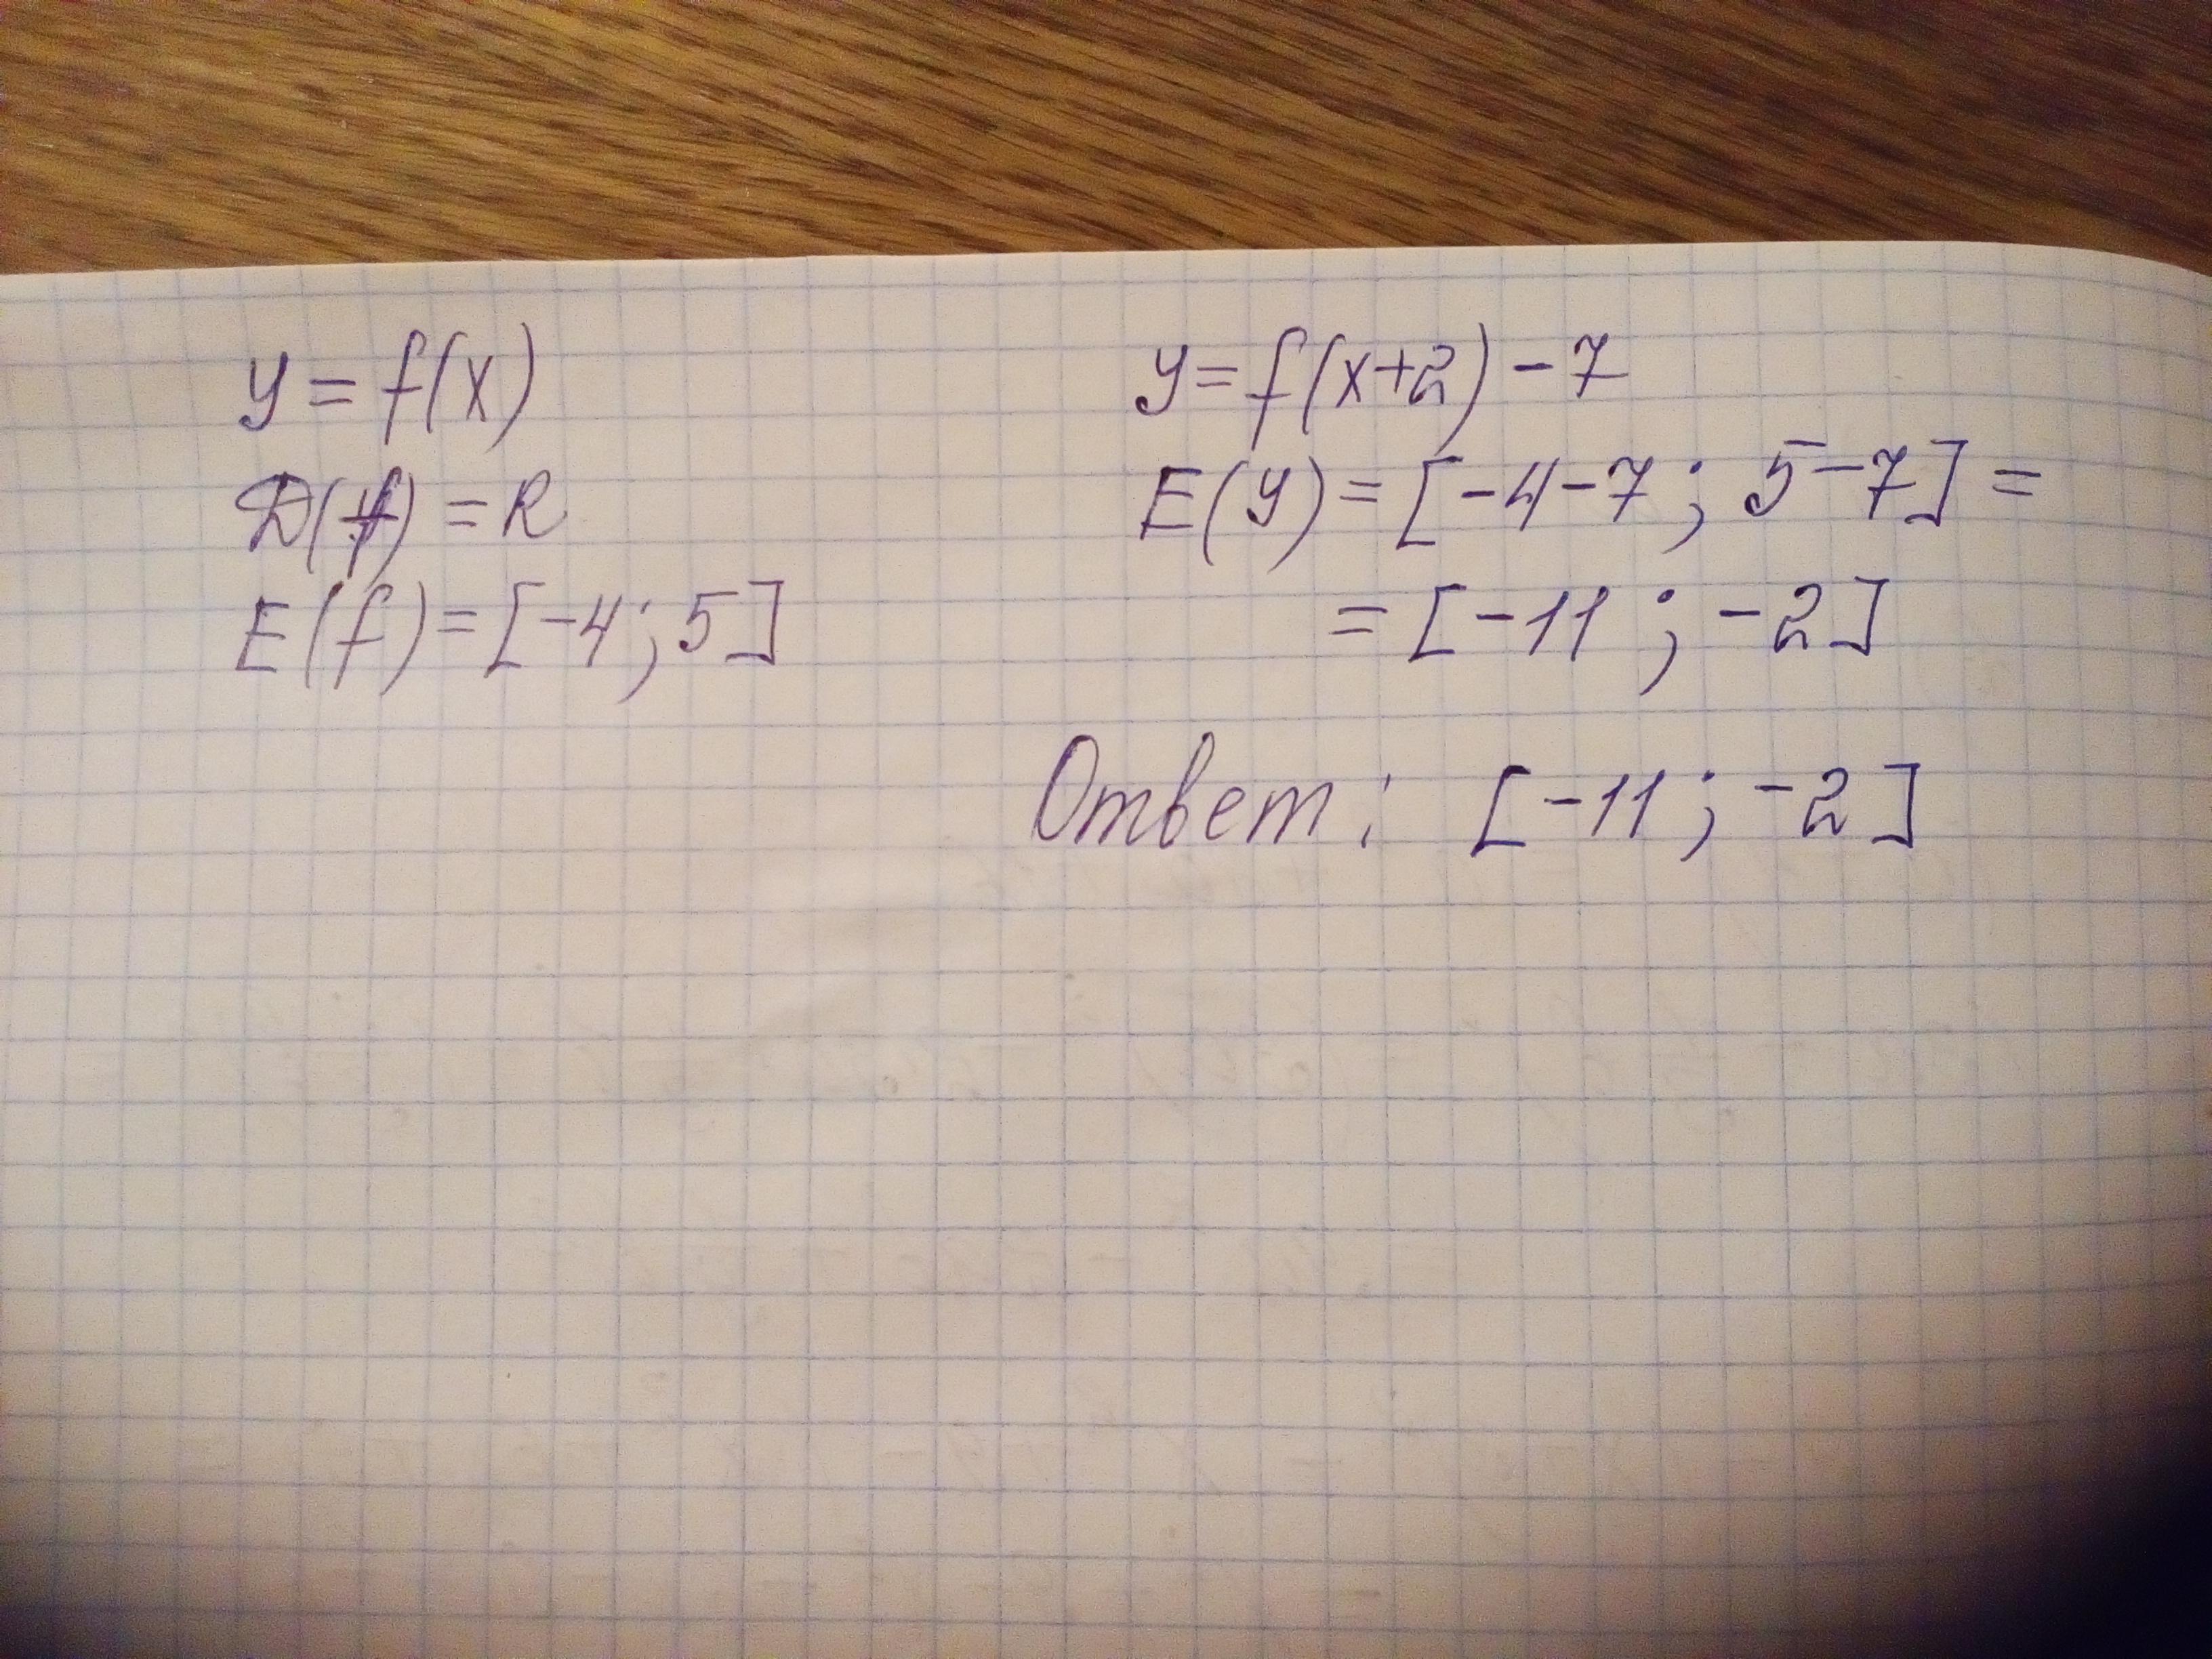 y = f(x)
D(f) = R
E(f) = [-4; 5]
y = f(x+2) - 7
E(y) = [-4-7; 5-7] =
= [-11; -2]
Ответ: [-11; -2]